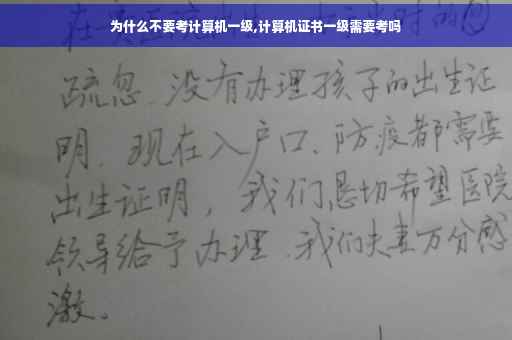 为什么不要考计算机一级,计算机证书一级需要考吗
疏忽、没有办理孩子的出生证
明、现在入户口、防疫都需要
出生证明，我们恳切希望医院
领导给予办理、我们夫妻万分感
激。